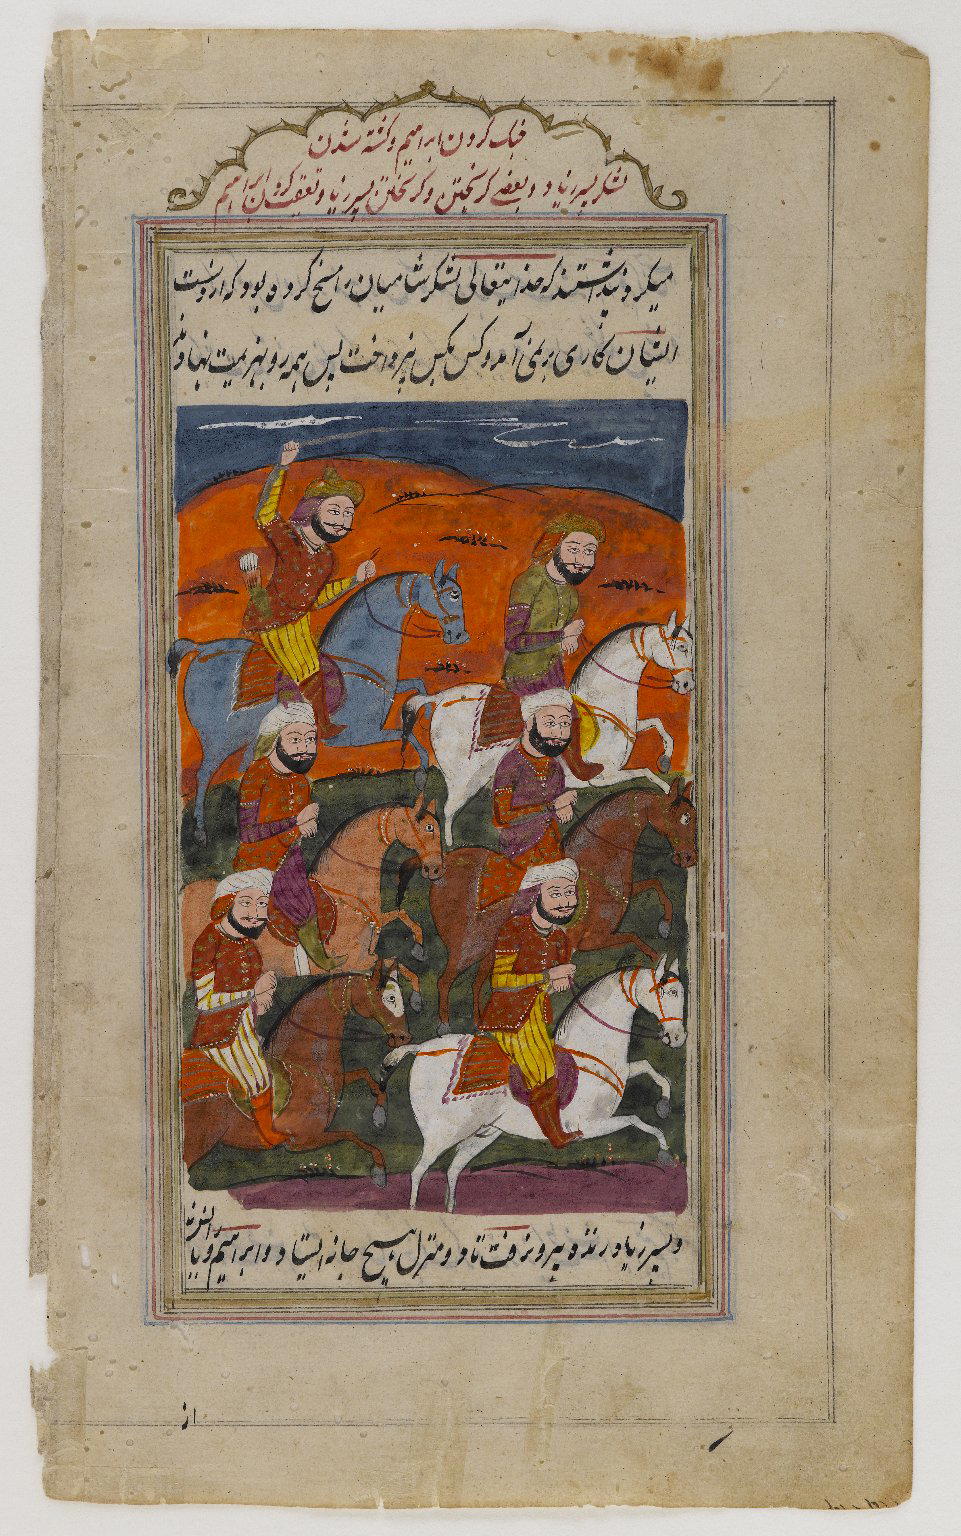 جنک کردن ابراهیم و کشته شدن
لشکر پسر زیاد و بعضی کریختن و کریختن پسر زیاد و تعقب کردن ابراهیم
میکرد پنداشتند که خدایتعالی لشکر شامیان را مسخ کرده بود که از دست
ایشان کاری بر نمی آمد و کس بکس نپرداخت پس همه رو بهزیمت نهادند
و پسر زیاد رنده بیرون رفت تا دو منزل هیچ جا نه ایستاد و ابراهیم و یا
از